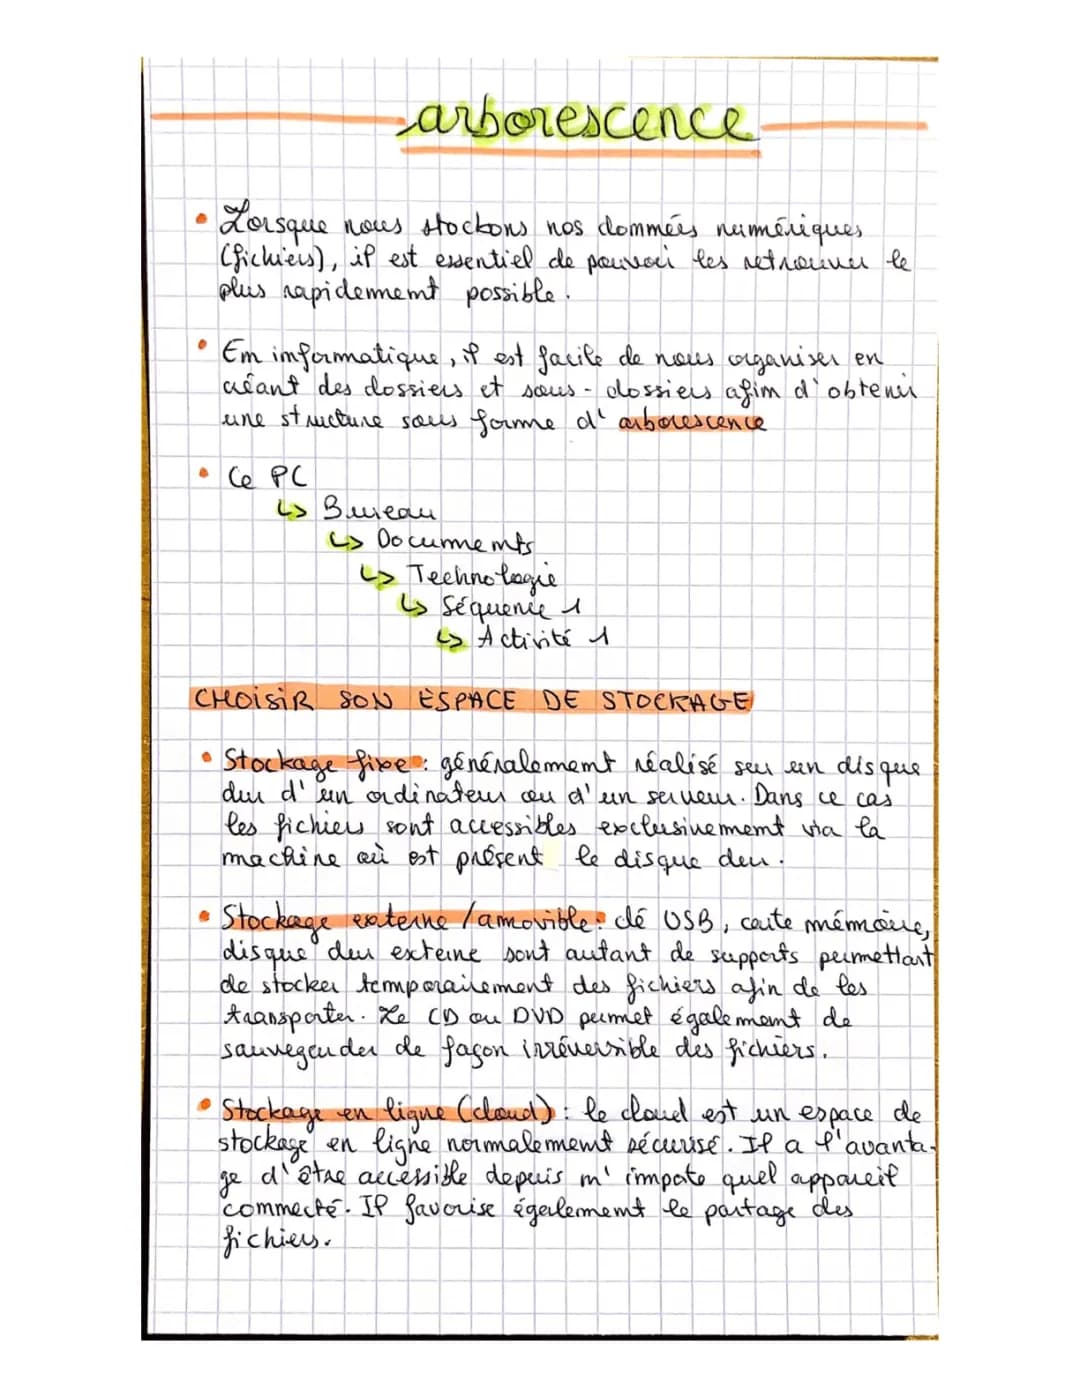 arborescence
• Lorsque nous stockons nos données numériques
(fichiers), il est essentiel de pouvoir les retrouver le
plus rapidement possible.
• En informatique, il est facile de nous organiser en
créant des dossiers et sous-dossiers afin d'obtenir
une structure sous forme d'arborescence
• Ce PC
↳ Bureau
↳ Documents
↳ Technologie
↳ Séquence 1
↳ Activité 1
CHOISIR SON ESPACE DE STOCKAGE
• Stockage fixe : généralement réalisé sur un disque
dur d'un ordinateur ou d'un serveur. Dans ce cas
les fichiers sont accessibles exclusivement via la
machine où est présent le disque dur.
• Stockage externe / amovible : clé USB, carte mémoire,
disque dur externe sont autant de supports permettant
de stocker temporairement des fichiers afin de les
transporter. Le CD ou DVD permet également de
sauvegarder de façon irréversible des fichiers.
• Stockage en ligne (cloud) : le cloud est un espace de
stockage en ligne normalement sécurisé. Il a l'avanta-
ge d'être accessible depuis n'importe quel appareil
connecté. Il favorise également le partage des
fichiers.